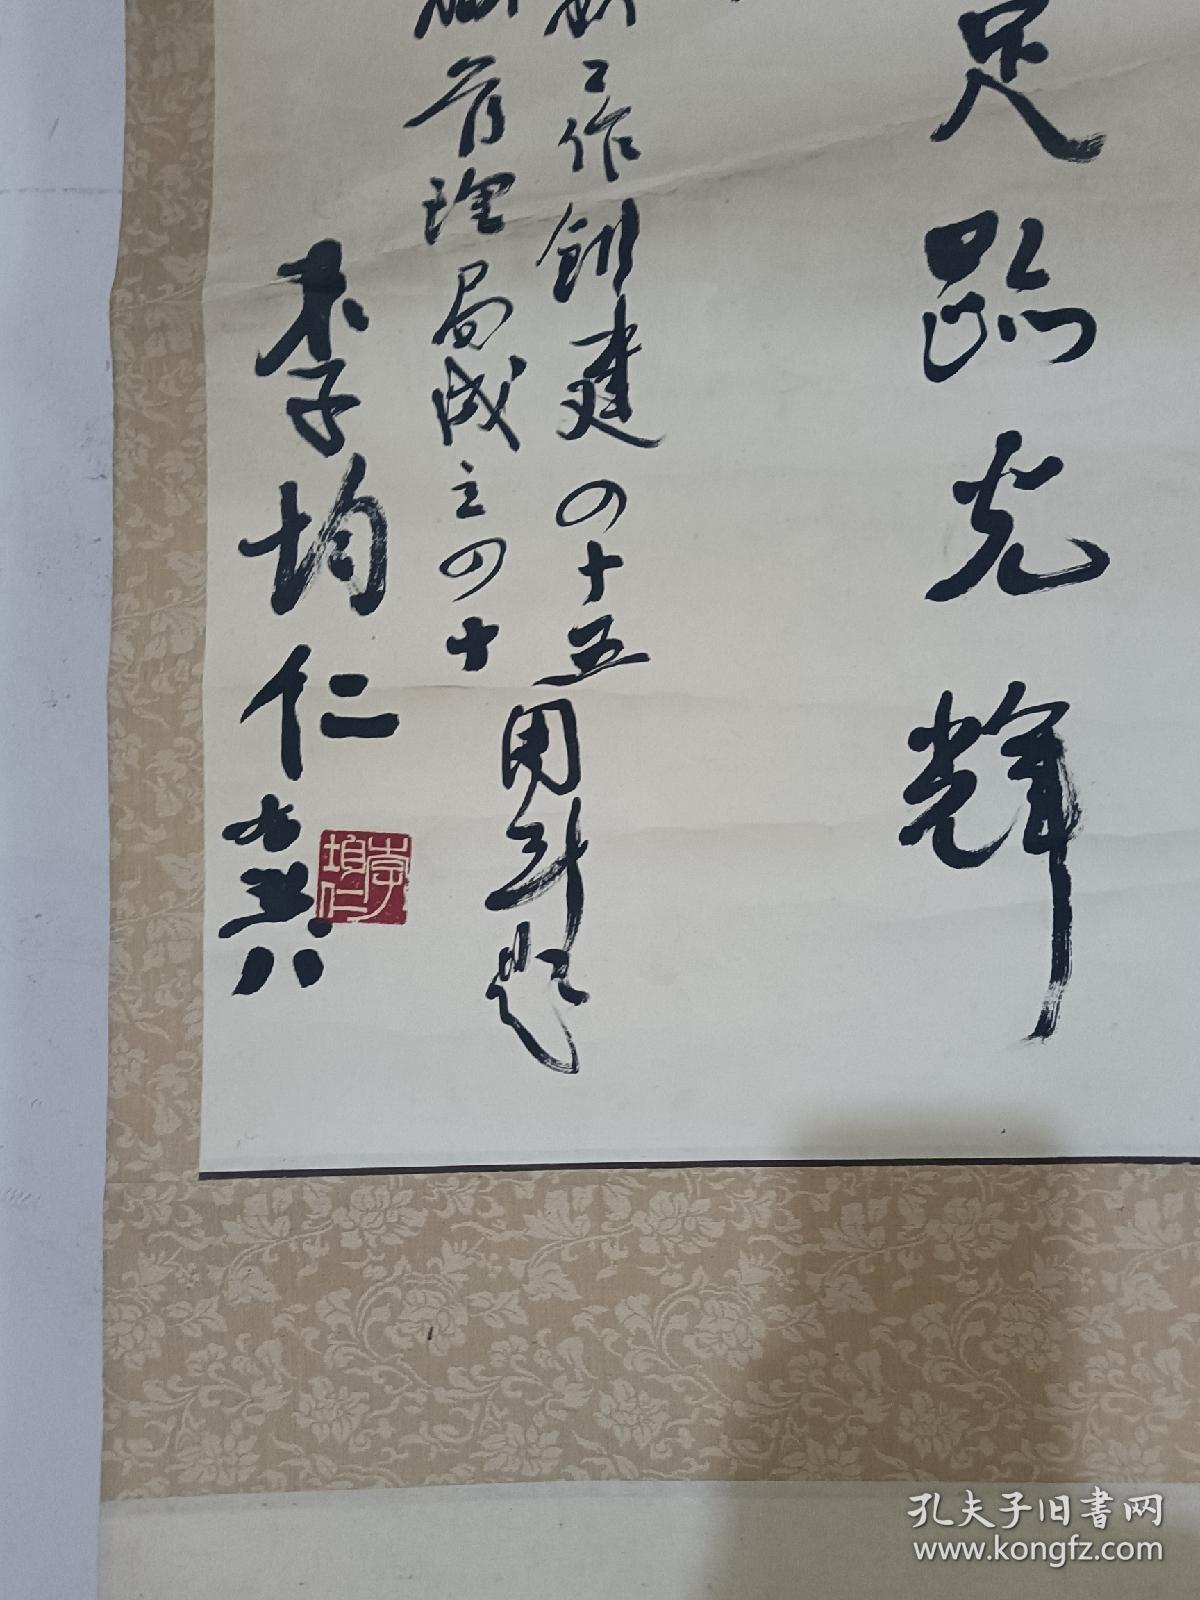 足跡光輝
工作創建四十五周年题
管理局成立四十
李均仁
李均仁
孔夫子旧書网
www.kongfz.com